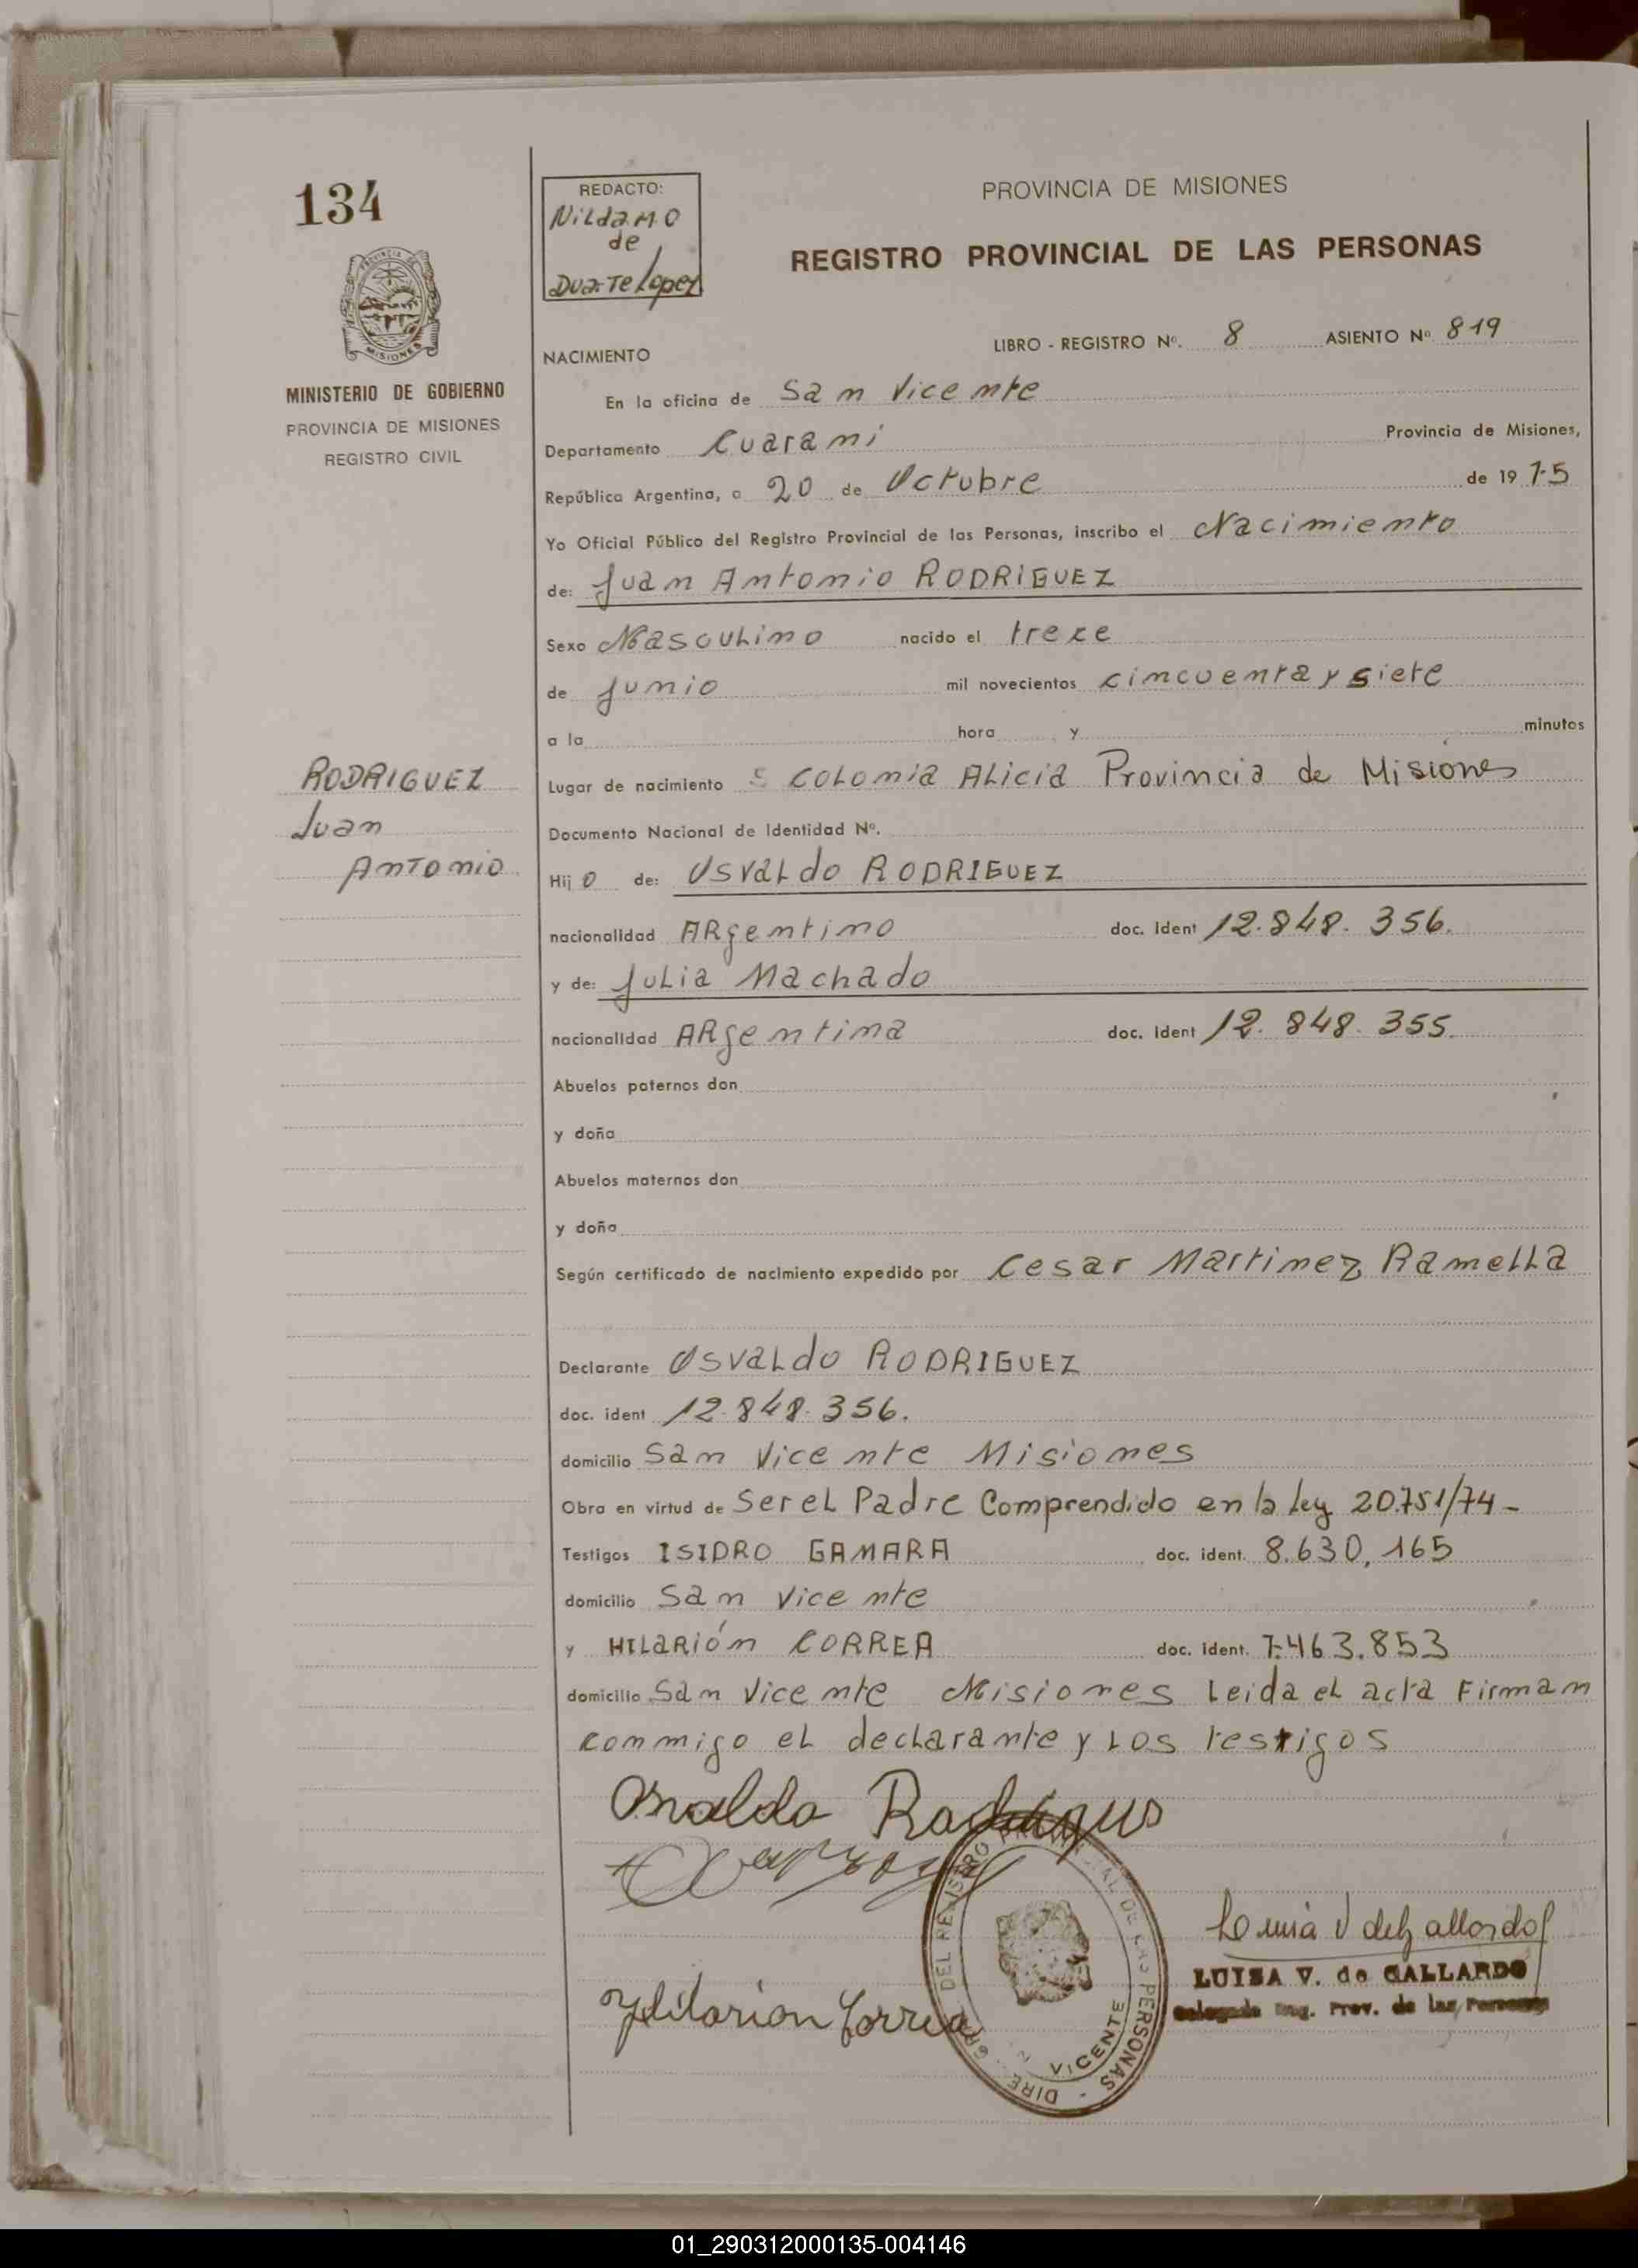 134
REDACTO:
Nilda M. O
de
Duarte Lopez
PROVINCIA DE MISIONES
REGISTRO PROVINCIAL DE LAS PERSONAS
PROVINCIA DE
MISIONES
MINISTERIO DE GOBIERNO
PROVINCIA DE MISIONES
REGISTRO CIVIL
LIBRO - REGISTRO Nº. 8 ASIENTO Nº 819
NACIMIENTO
En la oficina de San Vicente
Departamento Guarani Provincia de Misiones,
República Argentina, a 20 de Octubre de 19 75
Yo Oficial Público del Registro Provincial de las Personas, inscribo el Nacimiento
de: Juan Antonio RODRIGUEZ
Sexo Masculino nacido el trece
de Junio mil novecientos cincuenta y siete
a la hora y minutos
Lugar de nacimiento Colonia Alicia Provincia de Misiones
Documento Nacional de Identidad Nº.
RODRIGUEZ
Juan
Antonio
Hij o de: Osvaldo RODRIGUEZ
nacionalidad Argentino doc. ident 12.848.356.
y de: Julia Machado
nacionalidad Argentina doc. ident 12.848.355.
Abuelos paternos don
y doña
Abuelos maternos don
y doña
Según certificado de nacimiento expedido por Cesar Martinez Ramella
Declarante Osvaldo RODRIGUEZ
doc. ident 12.848.356.
domicilio San Vicente Misiones
Obra en virtud de Ser el Padre Comprendido en la Ley 20.751/74-
Testigos ISIDRO GAMARA doc. ident. 8.630,165
domicilio San Vicente
y HILARIÓN CORREA doc. ident. 7.463.853
domicilio San Vicente Misiones Leida el acta Firman
conmigo el declarante y los testigos
Osvaldo Rodrigues
Hilarion Correa
DEL REGISTRO PROVINCIAL DE LAS PERSONAS - DIRE GRAL
VICENTE
Luisa V de Gallardo
LUISA V. de GALLARDO
Delegada Reg. Prov. de las Personas
01_290312000135-004146